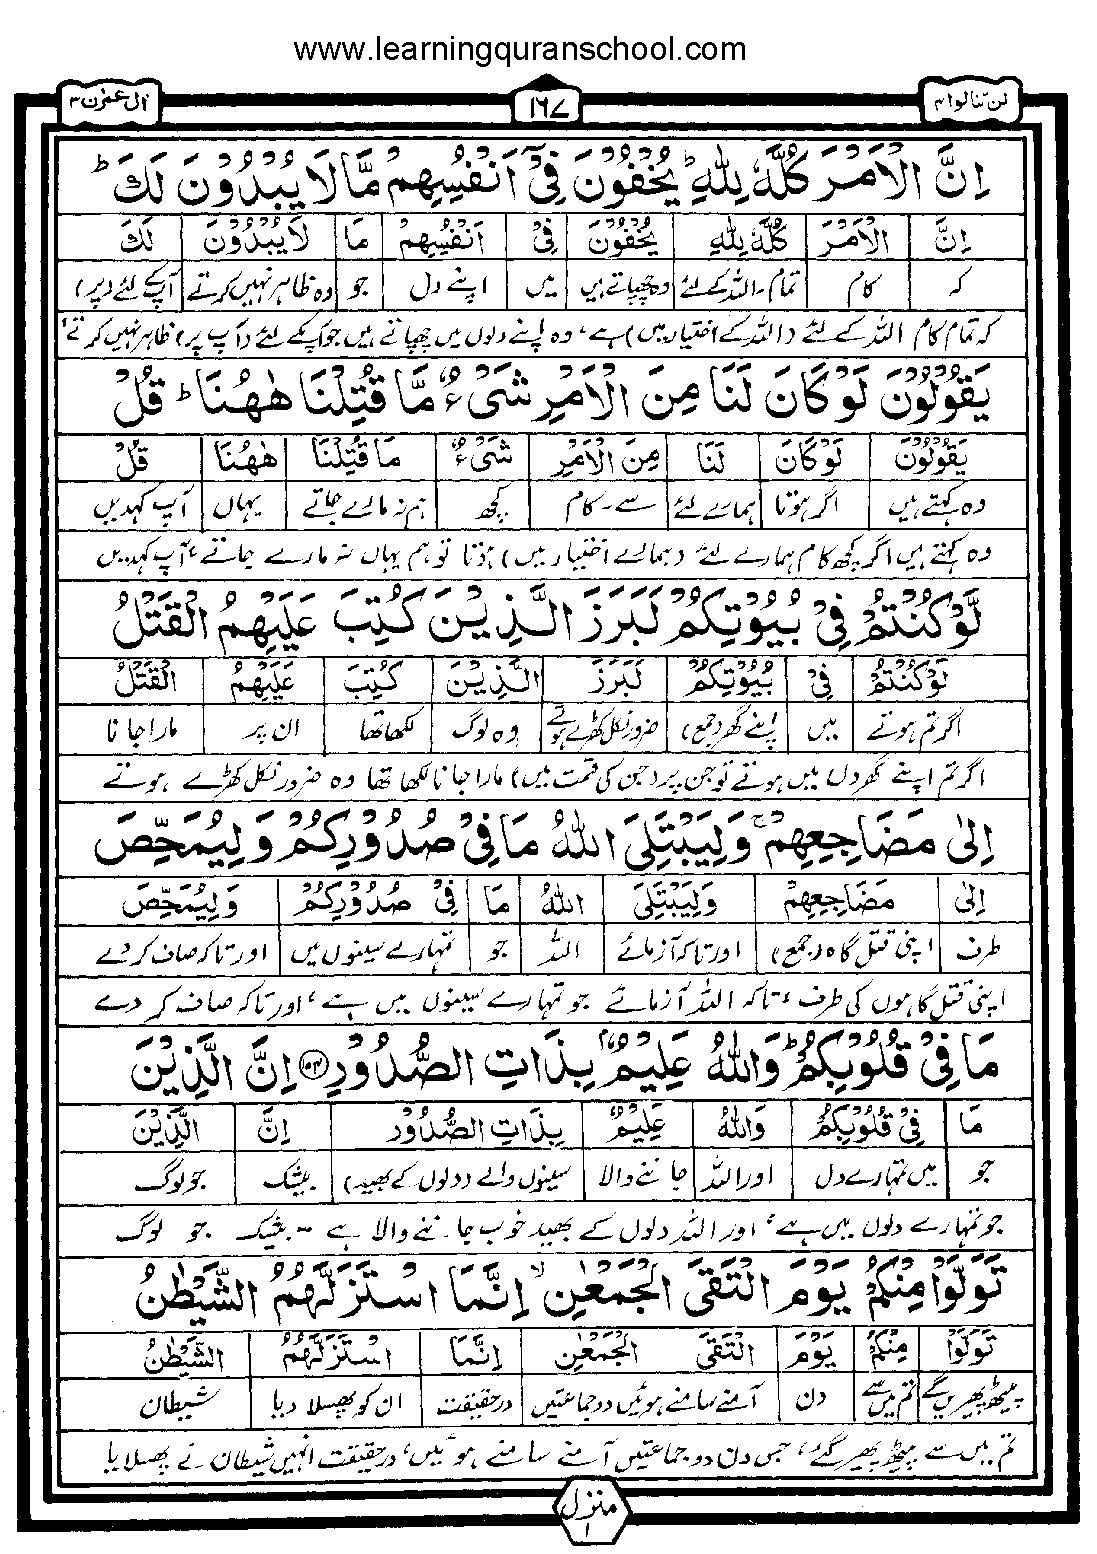 www.learningquranschool.com
لن تنالوا ۴ ۱۶۷ اٰل عمرٰن ۳
اِنَّ الْاَمْرَ كُلَّهٗ لِلّٰهِ ؕ يُخْفُوْنَ فِىْۤ اَنْفُسِهِمْ مَّا لَا يُبْدُوْنَ لَكَ ؕ
اِنَّ الْاَمْرَ كُلَّهٗ لِلّٰهِ يُخْفُوْنَ فِىْ اَنْفُسِهِمْ مَا لَا يُبْدُوْنَ لَكَ
کہ کام تمام۔ اللہ کے لئے وہ چھپاتے ہیں میں اپنے دل جو وہ ظاہر نہیں کرتے آپ کے لئے (پر)
کہ تمام کام اللہ کے لئے (اللہ کے اختیار میں) ہے، وہ اپنے دلوں میں چھپاتے ہیں جو آپ کے لئے (آپ پر) ظاہر نہیں کرتے،
يَقُوْلُوْنَ لَوْ كَانَ لَنَا مِنَ الْاَمْرِ شَىْءٌ مَّا قُتِلْنَا هٰهُنَا ؕ قُلْ
يَقُوْلُوْنَ لَوْ كَانَ لَنَا مِنَ الْاَمْرِ شَىْءٌ مَا قُتِلْنَا هٰهُنَا قُلْ
وہ کہتے ہیں اگر ہوتا ہمارے لئے سے۔ کام کچھ ہم نہ مارے جاتے یہاں آپ کہدیں
وہ کہتے ہیں اگر کچھ کام ہمارے لئے (ہمارے اختیار میں) ہوتا تو ہم یہاں نہ مارے جاتے، آپ کہدیں
لَّوْ كُنْتُمْ فِىْ بُيُوْتِكُمْ لَبَرَزَ الَّذِيْنَ كُتِبَ عَلَيْهِمُ الْقَتْلُ
لَوْ كُنْتُمْ فِىْ بُيُوْتِكُمْ لَبَرَزَ الَّذِيْنَ كُتِبَ عَلَيْهِمُ الْقَتْلُ
اگر تم ہوتے میں اپنے گھر (جمع) ضرور نکل کھڑے ہوتے وہ لوگ لکھا تھا ان پر مارا جانا
اگر تم اپنے گھروں میں ہوتے تو جن پر (جن کی قسمت میں) مارا جانا لکھا تھا وہ ضرور نکل کھڑے ہوتے
اِلٰى مَضَاجِعِهِمْ ۚ وَلِيَبْتَلِىَ اللّٰهُ مَا فِىْ صُدُوْرِكُمْ وَلِيُمَحِّصَ
اِلٰى مَضَاجِعِهِمْ وَلِيَبْتَلِىَ اللّٰهُ مَا فِىْ صُدُوْرِكُمْ وَلِيُمَحِّصَ
طرف اپنی قتل گاہ (جمع) اور تاکہ آزمائے اللہ جو تمہارے سینوں میں اور تاکہ صاف کردے
اپنی قتل گاہوں کی طرف، تاکہ اللہ آزمائے جو تمہارے سینوں میں ہے، اور تاکہ صاف کر دے
مَا فِىْ قُلُوْبِكُمْ ؕ وَاللّٰهُ عَلِيْمٌۢ بِذَاتِ الصُّدُوْرِ ﴿۱۵۴﴾ اِنَّ الَّذِيْنَ
مَا فِىْ قُلُوْبِكُمْ وَاللّٰهُ عَلِيْمٌۢ بِذَاتِ الصُّدُوْرِ اِنَّ الَّذِيْنَ
جو میں تمہارے دل اور اللہ جاننے والا سینوں والے (دلوں کے بھید) بیشک جو لوگ
جو تمہارے دلوں میں ہے، اور اللہ دلوں کے بھید خوب جاننے والا ہے ۔ بیشک جو لوگ
تَوَلَّوْا مِنْكُمْ يَوْمَ الْتَقَى الْجَمْعٰنِ ۙ اِنَّمَا اسْتَزَلَّهُمُ الشَّيْطٰنُ
تَوَلَّوْا مِنْكُمْ يَوْمَ الْتَقَى الْجَمْعٰنِ اِنَّمَا اسْتَزَلَّهُمُ الشَّيْطٰنُ
پیٹھ پھیریں گے تم میں سے دن آمنے سامنے ہوئیں دو جماعتیں درحقیقت ان کو پھسلا دیا شیطان
تم میں سے پیٹھ پھیر گئے، جس دن دو جماعتیں آمنے سامنے ہوئیں، درحقیقت انہیں شیطان نے پھسلایا
منزل ۱